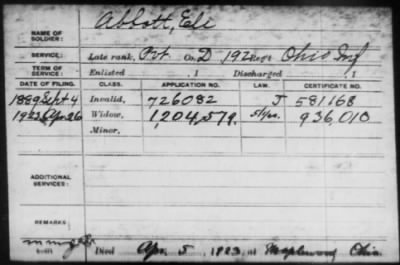 NAME OF SOLDIER: Abbott, Eli
SERVICE: Late rank, Pvt Co. D 192 Reg't Ohio Inf
TERM OF SERVICE: Enlisted , 1 Discharged , 1
DATE OF FILING. CLASS. APPLICATION NO. LAW. CERTIFICATE NO.
1889 Sept 4 Invalid, 726082 J 581168
1923 Apr 26 Widow, 1,204,579 936,010
Minor,
ADDITIONAL SERVICES:
REMARKS:
Died Apr. 5, 1923, at Maplewood Ohio